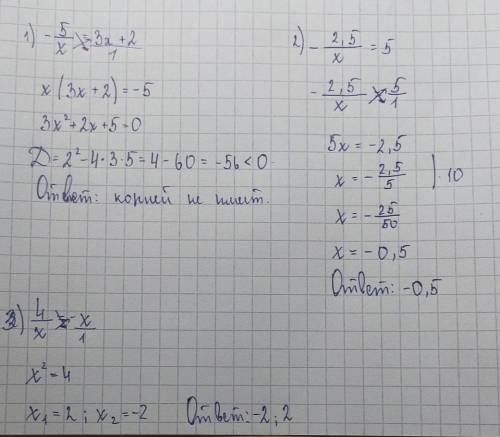 1) -5/x = 3x+2/1
x(3x+2) = -5
3x²+2x+5=0
D=2²-4·3·5=4-60=-56<0.
Ответ: корней не имеет.
2) -2,5/x = 5
-2,5/x = 5/1
5x = -2,5
x = -2,5/5 | ·10
x = -25/50
x = -0,5
Ответ: -0,5
3) 4/x = x/1
x² = 4
x₁ = 2; x₂ = -2 Ответ: -2; 2